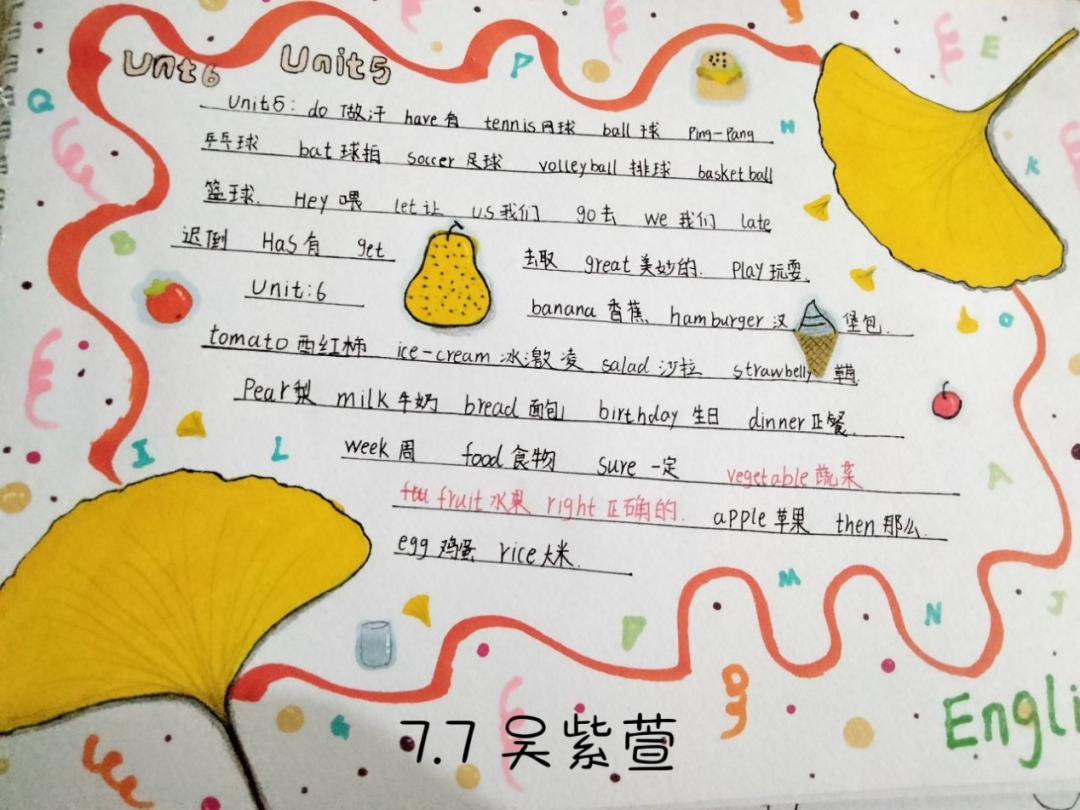 Unt6 Unit5
Unit5: do 做汗 have 有 tennis 网球 ball 球 Ping-Pang
乒乓球 bat 球拍 soccer 足球 volleyball 排球 basketball
篮球. Hey 喂 let 让 us 我们 go 去 we 我们 late
迟倒 Has 有 get 去取 great 美妙的. Play 玩耍.
Unit:6 banana 香蕉 hamburger 汉堡包.
tomato 西红柿 ice-cream 冰激凌 salad 沙拉 strawbelly
Pear 梨 milk 牛奶 bread 面包 birthday 生日 dinner 正餐.
week 周 food 食物 sure 一定 vegetable 蔬菜
fruit 水果 right 正确的. apple 苹果 then 那么.
egg 鸡蛋 rice 大米.
7.7 吴紫萱
Engli
Q
P
E
H
K
B
O
I
L
A
M
N
J
D
G